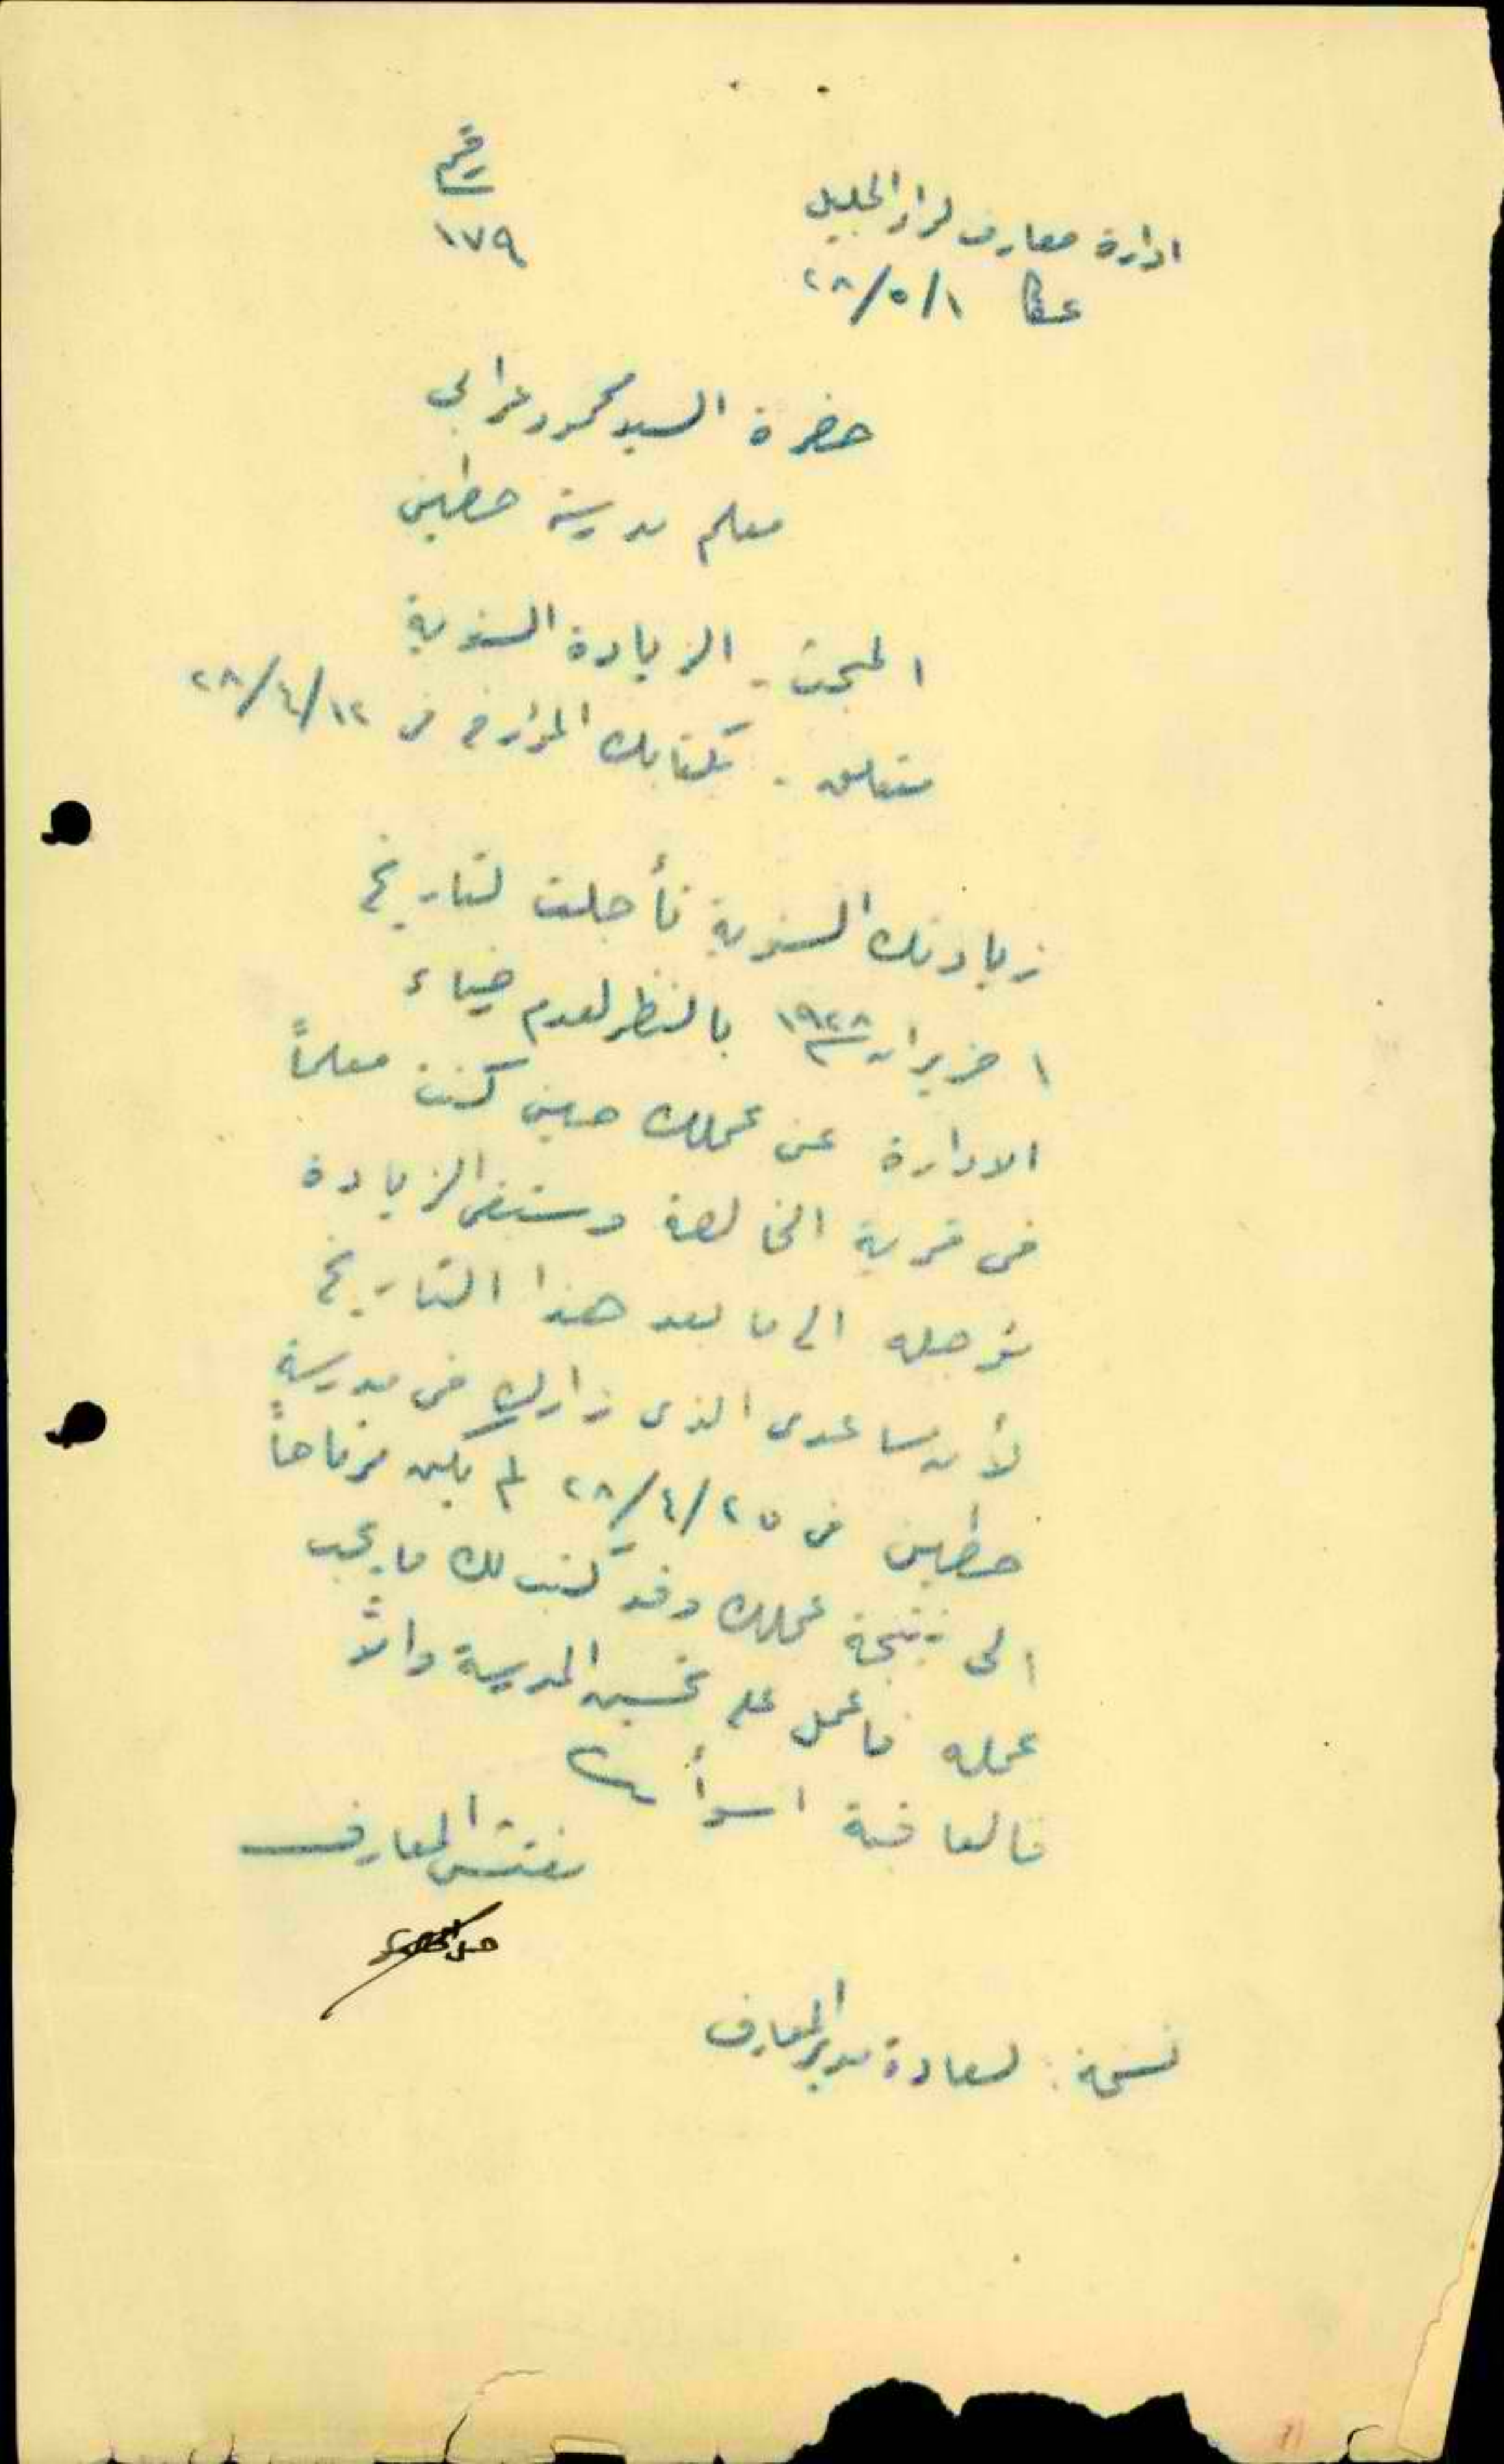 رقم
١٧٩
ادارة معارف لواء الجليل
عكا ٢٨/٥/١
حضرة السيد محمود عرابي
معلم مدرسة حطين
المبحث - الزيادة السنوية
متعلق - بكتابك المؤرخ في ٢٨/٤/١٢
زيادتك السنوية تأجلت لتاريخ
١ حزيران ١٩٢٨ بالنظر لعدم رضاء
الادارة عن عملك حين كنت معلماً
في قرية الخالصة وستبقى الزيادة
مؤجلة الى ما بعد هذا التاريخ
لأن مساعدي الذي زارك في مدرسة
حطين في ٢٨/٤/٢٥ لم يكن مرتاحاً
الى نتيجة عملك وقد كتب لك ما يجب
عمله فاعمل على تحسين المدرسة والاّ
فالعاقبة اسوأ
مفتش المعارف
نسخة: لسعادة مدير المعارف